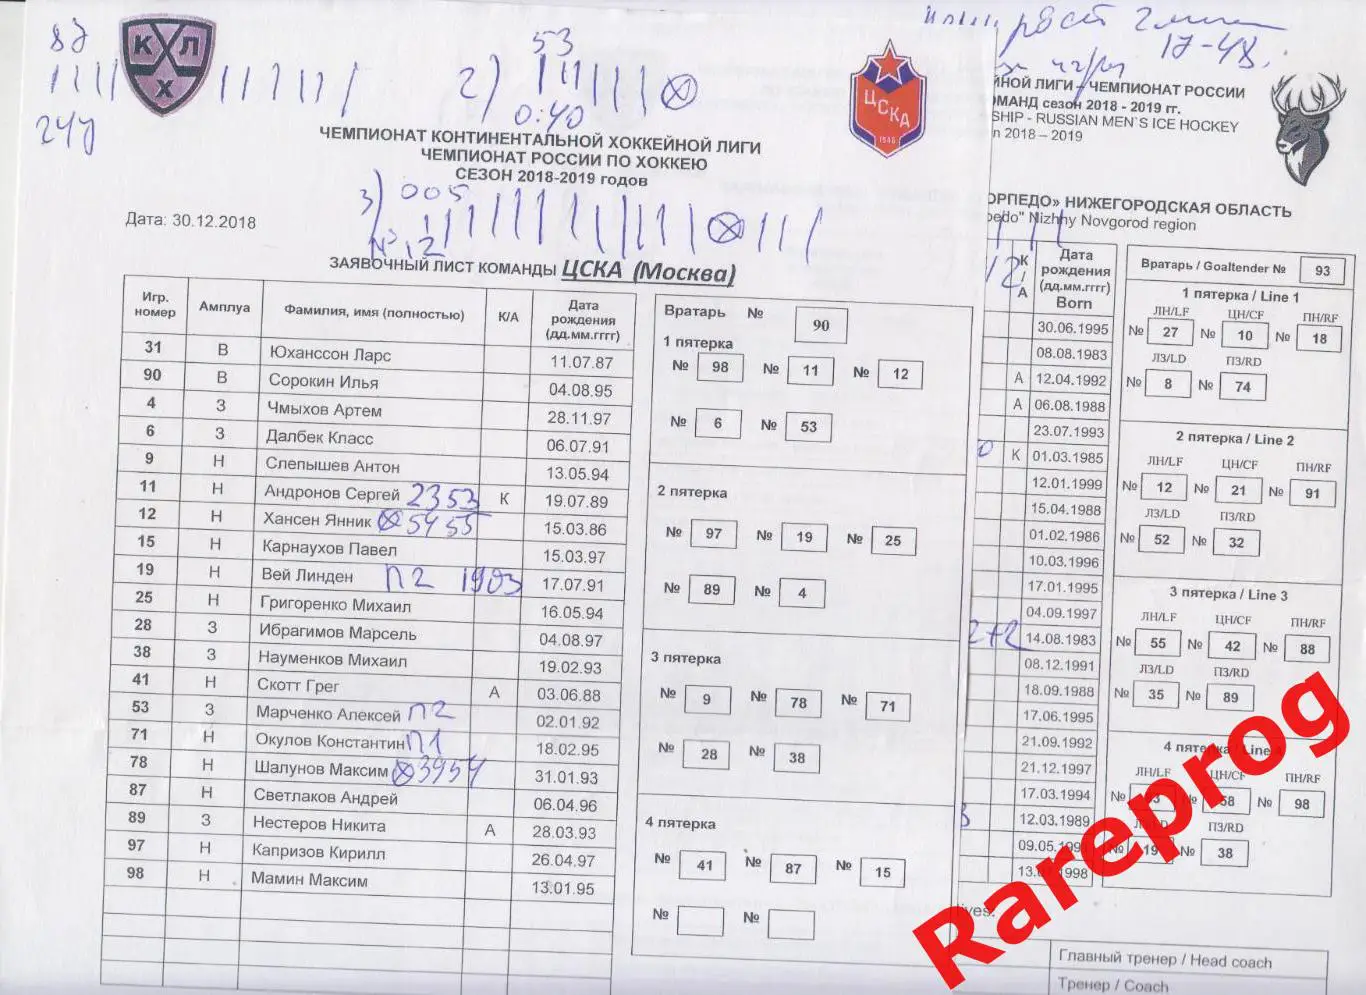 87
КХЛ
244
2) 53
0:40
ЦСКА
1946
17-48.
ЧЕМПИОНАТ КОНТИНЕНТАЛЬНОЙ ХОККЕЙНОЙ ЛИГИ
ЧЕМПИОНАТ РОССИИ ПО ХОККЕЮ
СЕЗОН 2018-2019 годов
3) 005
№ 12
Дата: 30.12.2018
ЗАЯВОЧНЫЙ ЛИСТ КОМАНДЫ ЦСКА (Москва)
Игр. номер Амплуа Фамилия, имя (полностью) К/А Дата рождения (дд.мм.гггг)
31 В Юханссон Ларс 11.07.87
90 В Сорокин Илья 04.08.95
4 З Чмыхов Артем 28.11.97
6 З Далбек Класс 06.07.91
9 Н Слепышев Антон 13.05.94
11 Н Андронов Сергей 2353 К 19.07.89
12 Н Хансен Янник 5455 15.03.86
15 Н Карнаухов Павел 15.03.97
19 Н Вей Линден П2 1903 17.07.91
25 Н Григоренко Михаил 16.05.94
28 З Ибрагимов Марсель 04.08.97
38 З Науменков Михаил 19.02.93
41 Н Скотт Грег А 03.06.88
53 З Марченко Алексей П2 02.01.92
71 Н Окулов Константин П1 18.02.95
78 Н Шалунов Максим 3954 31.01.93
87 Н Светлаков Андрей 06.04.96
89 З Нестеров Никита А 28.03.93
97 Н Капризов Кирилл 26.04.97
98 Н Мамин Максим 13.01.95
Вратарь № 90
1 пятерка
№ 98 № 11 № 12
№ 6 № 53
2 пятерка
№ 97 № 19 № 25
№ 89 № 4
3 пятерка
№ 9 № 78 № 71
№ 28 № 38
4 пятерка
№ 41 № 87 № 15
№ №
ЙНОЙ ЛИГИ – ЧЕМПИОНАТ РОССИИ
ОМАНД сезон 2018 - 2019 гг.
SHIP - RUSSIAN MEN`S ICE HOCKEY
n 2018 – 2019
ОРПЕДО» НИЖЕГОРОДСКАЯ ОБЛАСТЬ
pedo" Nizhny Novgorod region
К / А Дата рождения (дд.мм.гггг) Born
30.06.1995
08.08.1983
А 12.04.1992
А 06.08.1988
23.07.1993
К 01.03.1985
12.01.1999
15.04.1988
01.02.1986
10.03.1996
17.01.1995
04.09.1997
2+2 14.08.1983
08.12.1991
18.09.1988
17.06.1995
21.09.1992
21.12.1997
17.03.1994
12.03.1989
Вратарь / Goaltender № 93
1 пятерка / Line 1
ЛН/LF ЦН/CF ПН/RF
№ 27 № 10 № 18
ЛЗ/LD ПЗ/RD
№ 8 № 74
2 пятерка / Line 2
ЛН/LF ЦН/CF ПН/RF
№ 12 № 21 № 91
ЛЗ/LD ПЗ/RD
№ 52 № 32
3 пятерка / Line 3
ЛН/LF ЦН/CF ПН/RF
№ 55 № 42 № 88
ЛЗ/LD ПЗ/RD
№ 35 № 89
4 пятерка / Line
ЛН/LF ЦН/CF ПН/RF
№ 58 № 98
ПЗ/RD
№ 19 № 38
Главный тренер / Head coach
Тренер / Coach
Rareprog